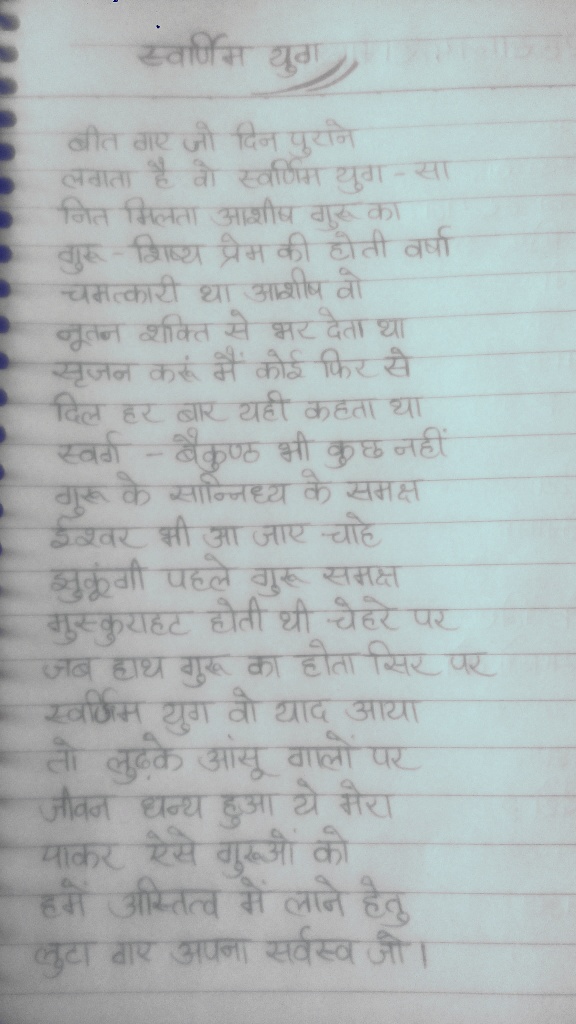 स्वर्णिम युग
बीत गए जो दिन पुराने
लगता है वो स्वर्णिम युग - सा
नित मिलता आशीष गुरू का
गुरू - शिष्य प्रेम की होती वर्षा
चमत्कारी था आशीष वो
नूतन शक्ति से भर देता था
सृजन करूं मैं कोई फिर से
दिल हर बार यही कहता था
स्वर्ग - बैकुण्ठ भी कुछ नहीं
गुरू के सान्निध्य के समक्ष
ईश्वर भी आ जाए चाहे
झुकूंगी पहले गुरू समक्ष
मुस्कुराहट होती थी चेहरे पर
जब हाथ गुरू का होता सिर पर
स्वर्णिम युग वो याद आया
तो लुढ़के आंसू गालों पर
जीवन धन्य हुआ ये मेरा
पाकर ऐसे गुरूओं को
हमें अस्तित्व में लाने हेतु
लुटा गए अपना सर्वस्व जो।